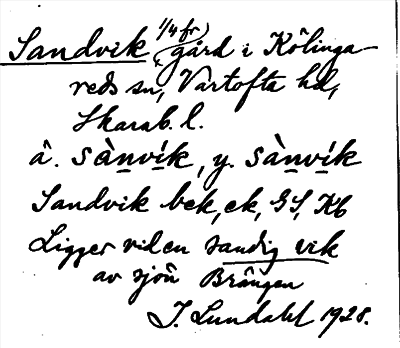 Sandvik (gård i Kölinga-
1/4 fr)
reds sn, Vartofta hd,
Skarab. l.
ä. sànvík, y. sànvík
Sandvik bek, ek, GS, Kb
Ligger vid en sandig vik
av sjön Brången
J. Lundahl 1928.